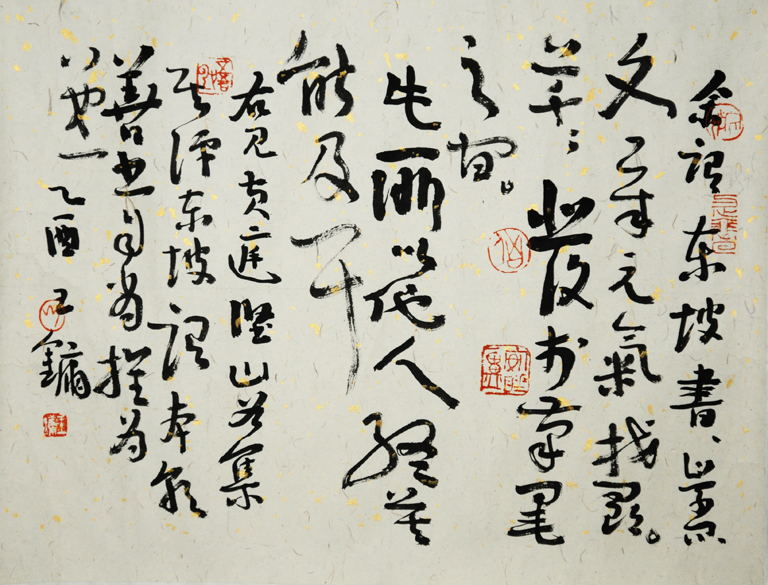 余謂东坡書、學问
文章之氣
芊〻發於筆墨
之间。
此所以他人終莫
能及耳
右見黄庭堅山谷集
评东坡語本朝
善书自當推為
第一乙酉王鏞